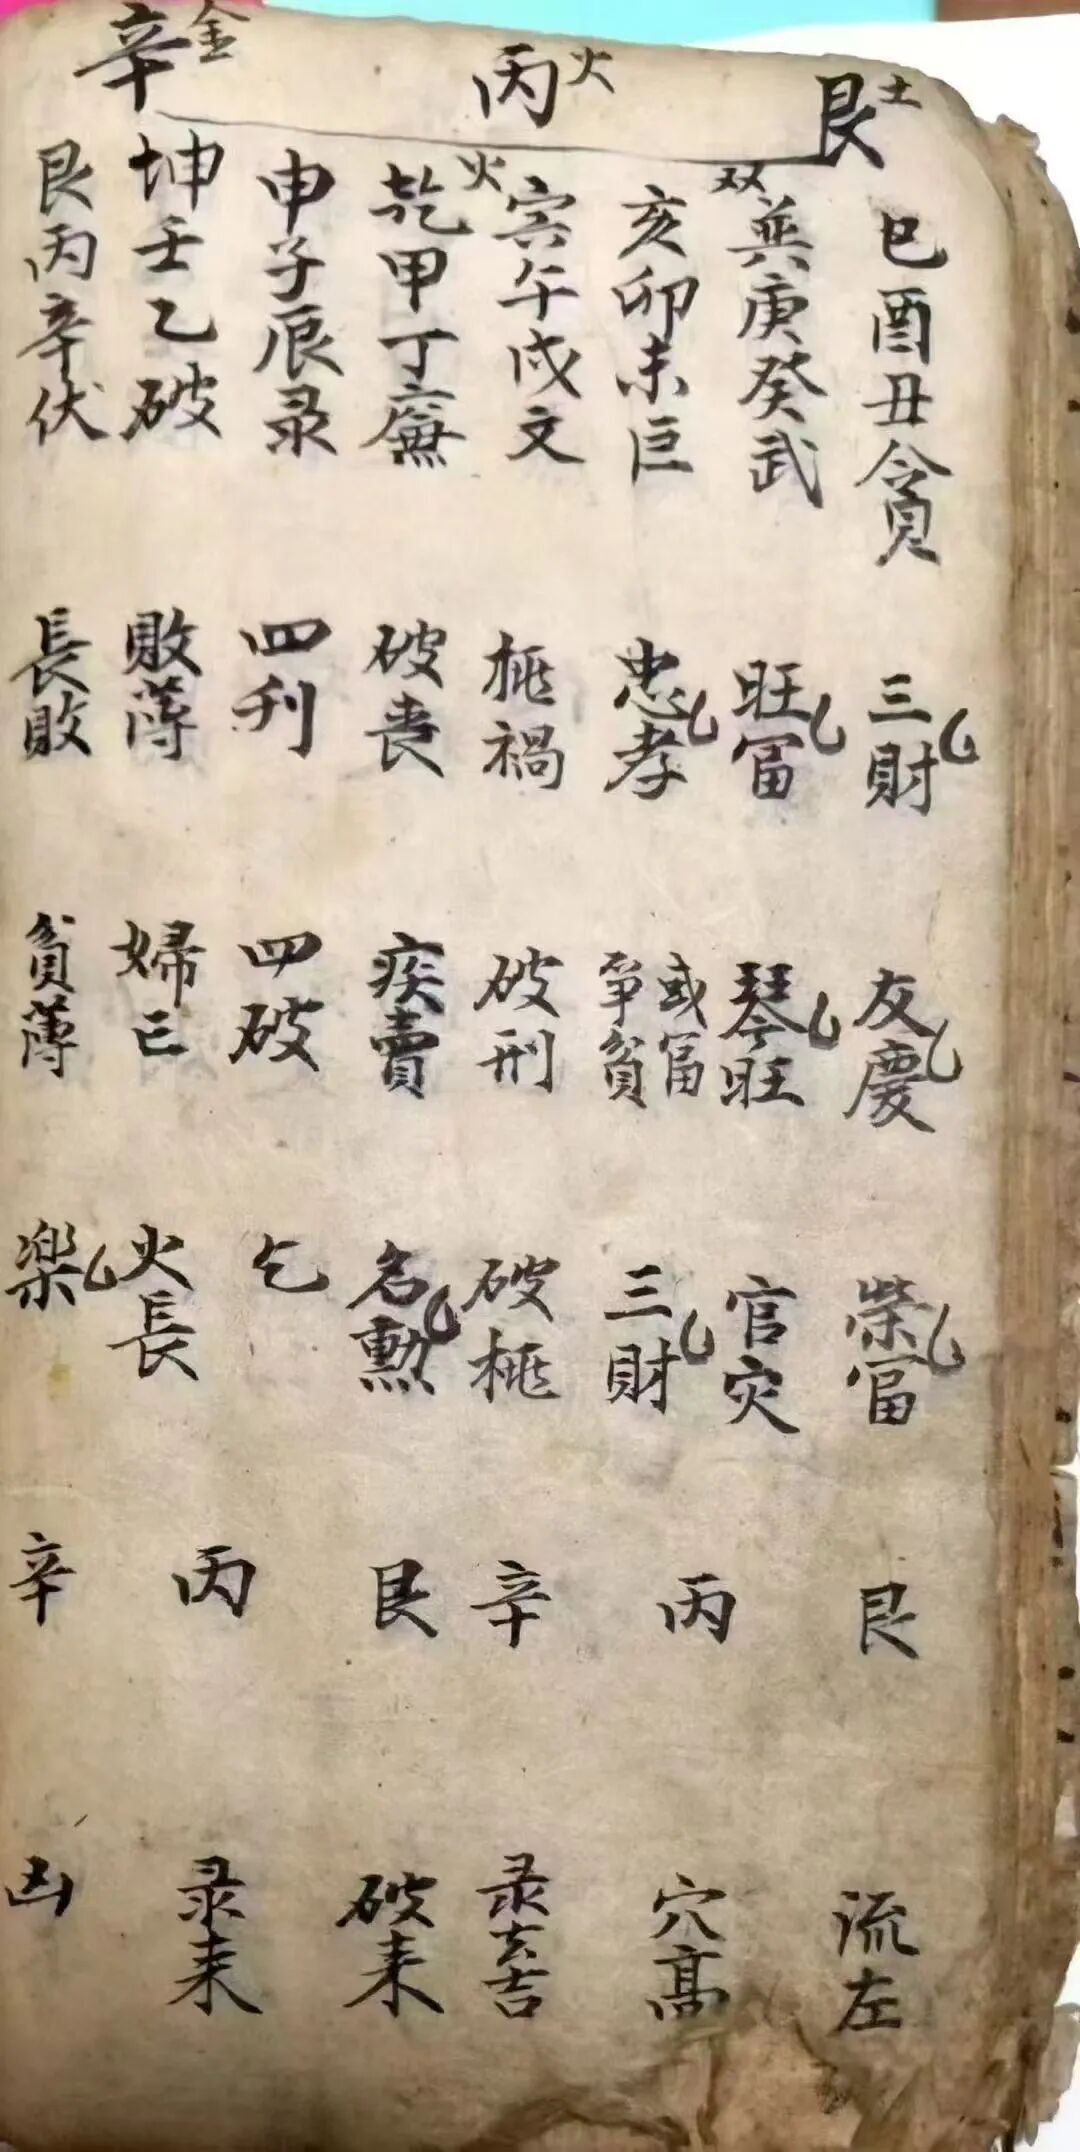 艮土
丙火
辛金
巳酉丑貪
双
巽庚癸武
亥卯未巨
火
寅午戌文
乾甲丁廉
申子辰录
坤壬乙破
艮丙辛伏
三財
旺冨
忠孝
禍
破喪
四刋
敗薄
長敗
友慶
琴旺
或冨
爭貧
破刑
疾賣
四破
婦亡
貧薄
榮冨
官灾
三財
破
名勲
乞
火長
楽
艮
丙
辛
艮
丙
辛
流左
穴高
录去吉
破来
录来
凶